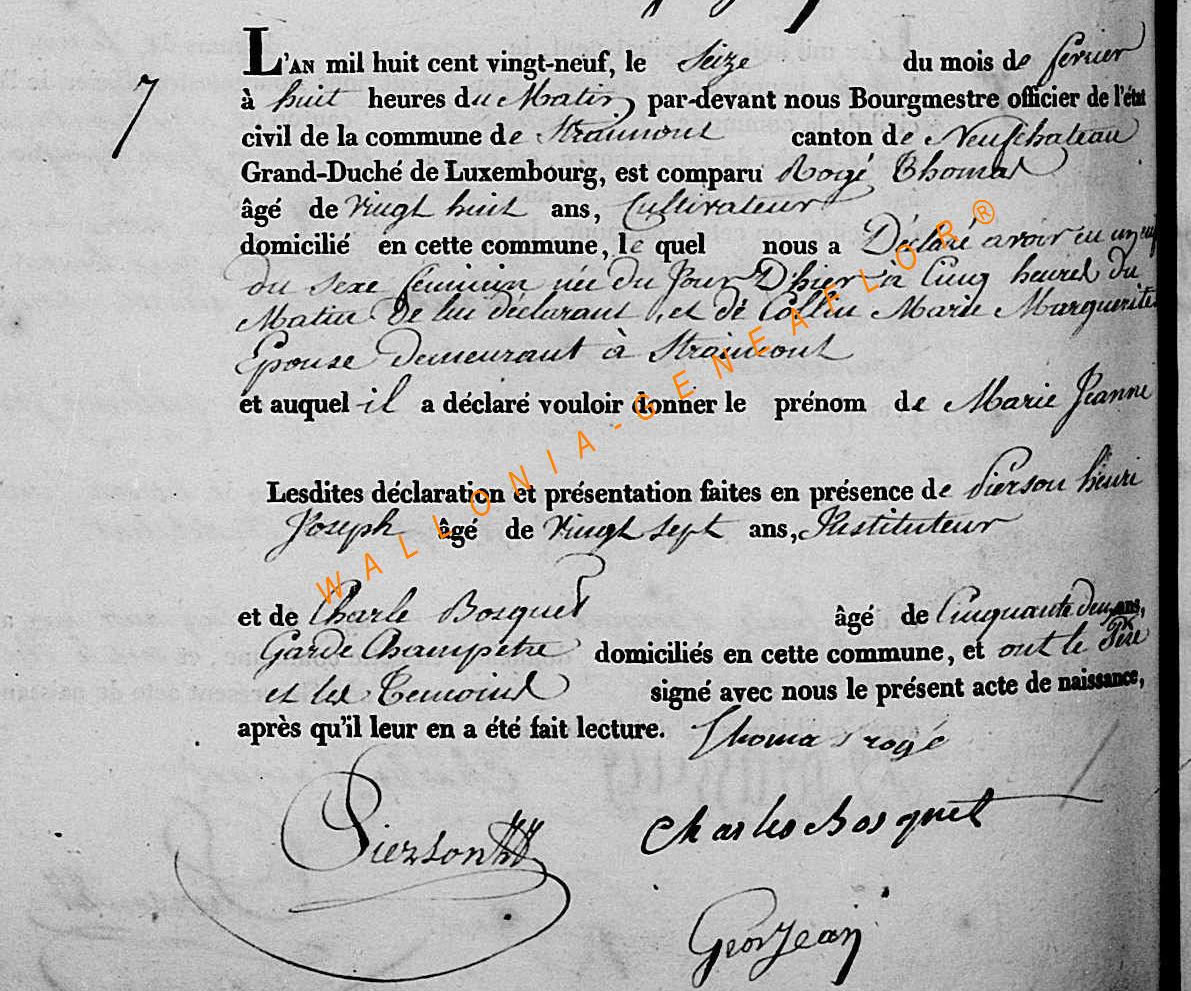 7
L'AN mil huit cent vingt-neuf, le Seize du mois de fevrier
à huit heures du Matin par-devant nous Bourgmestre officier de l'état
civil de la commune de Straimont canton de Neufchateau
Grand-Duché de Luxembourg, est comparu Rogé Thomas
âgé de Vingt huit ans, Cultivateur
domicilié en cette commune, le quel nous a Déclaré avoir eu un enf
du sexe féminin née du Jour D'hier à Cinq heures du
Matin De lui déclarant, et de Collin Marie Marguerite
Epouse Demeurant à Straimont
et auquel il a déclaré vouloir donner le prénom de Marie Jeanne
Lesdites déclaration et présentation faites en présence de Pierson henri
Joseph âgé de Vingt sept ans, Instituteur
et de Charle Bosquet âgé de Cinquante deux ans,
Garde Champetre domiciliés en cette commune, et ont le Père
et les Temoins signé avec nous le présent acte de naissance,
après qu'il leur en a été fait lecture. Thomas rogé
Pierson
Charles Bosquet
WALLONIA-GENEAFLOR®